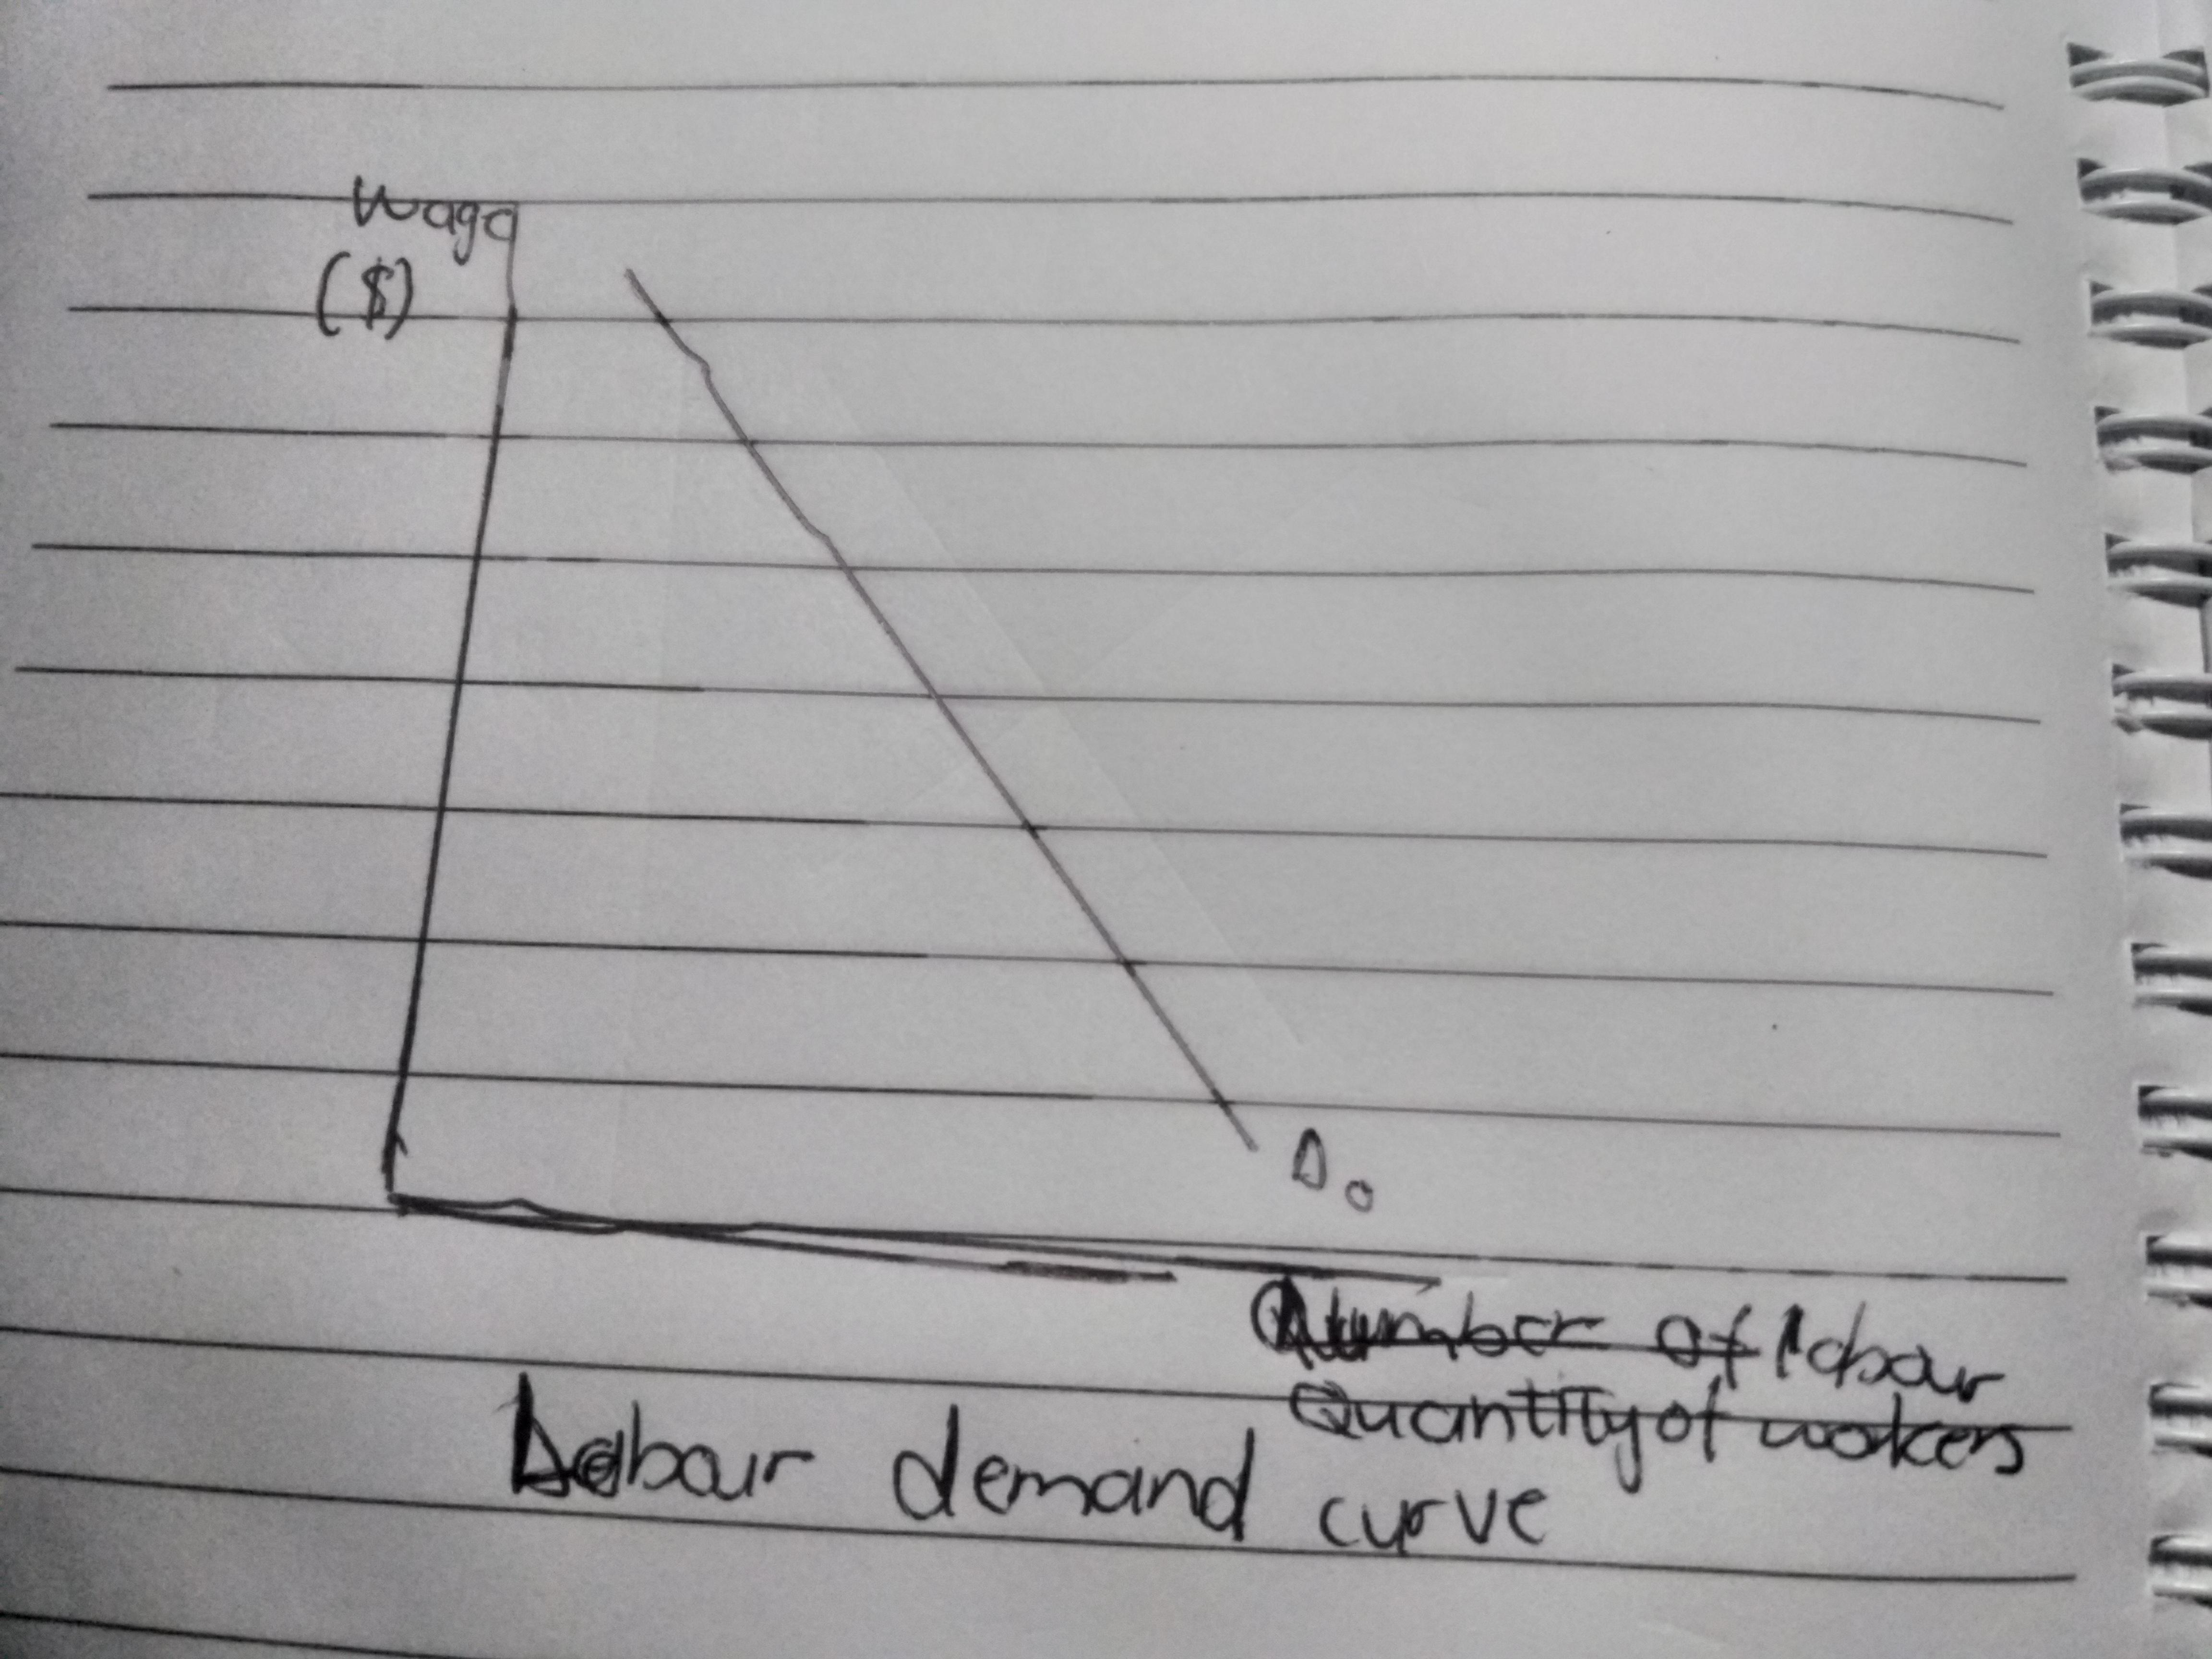 Wage
($)
D₀
Number of labour
Quantity of workers
Labour demand curve